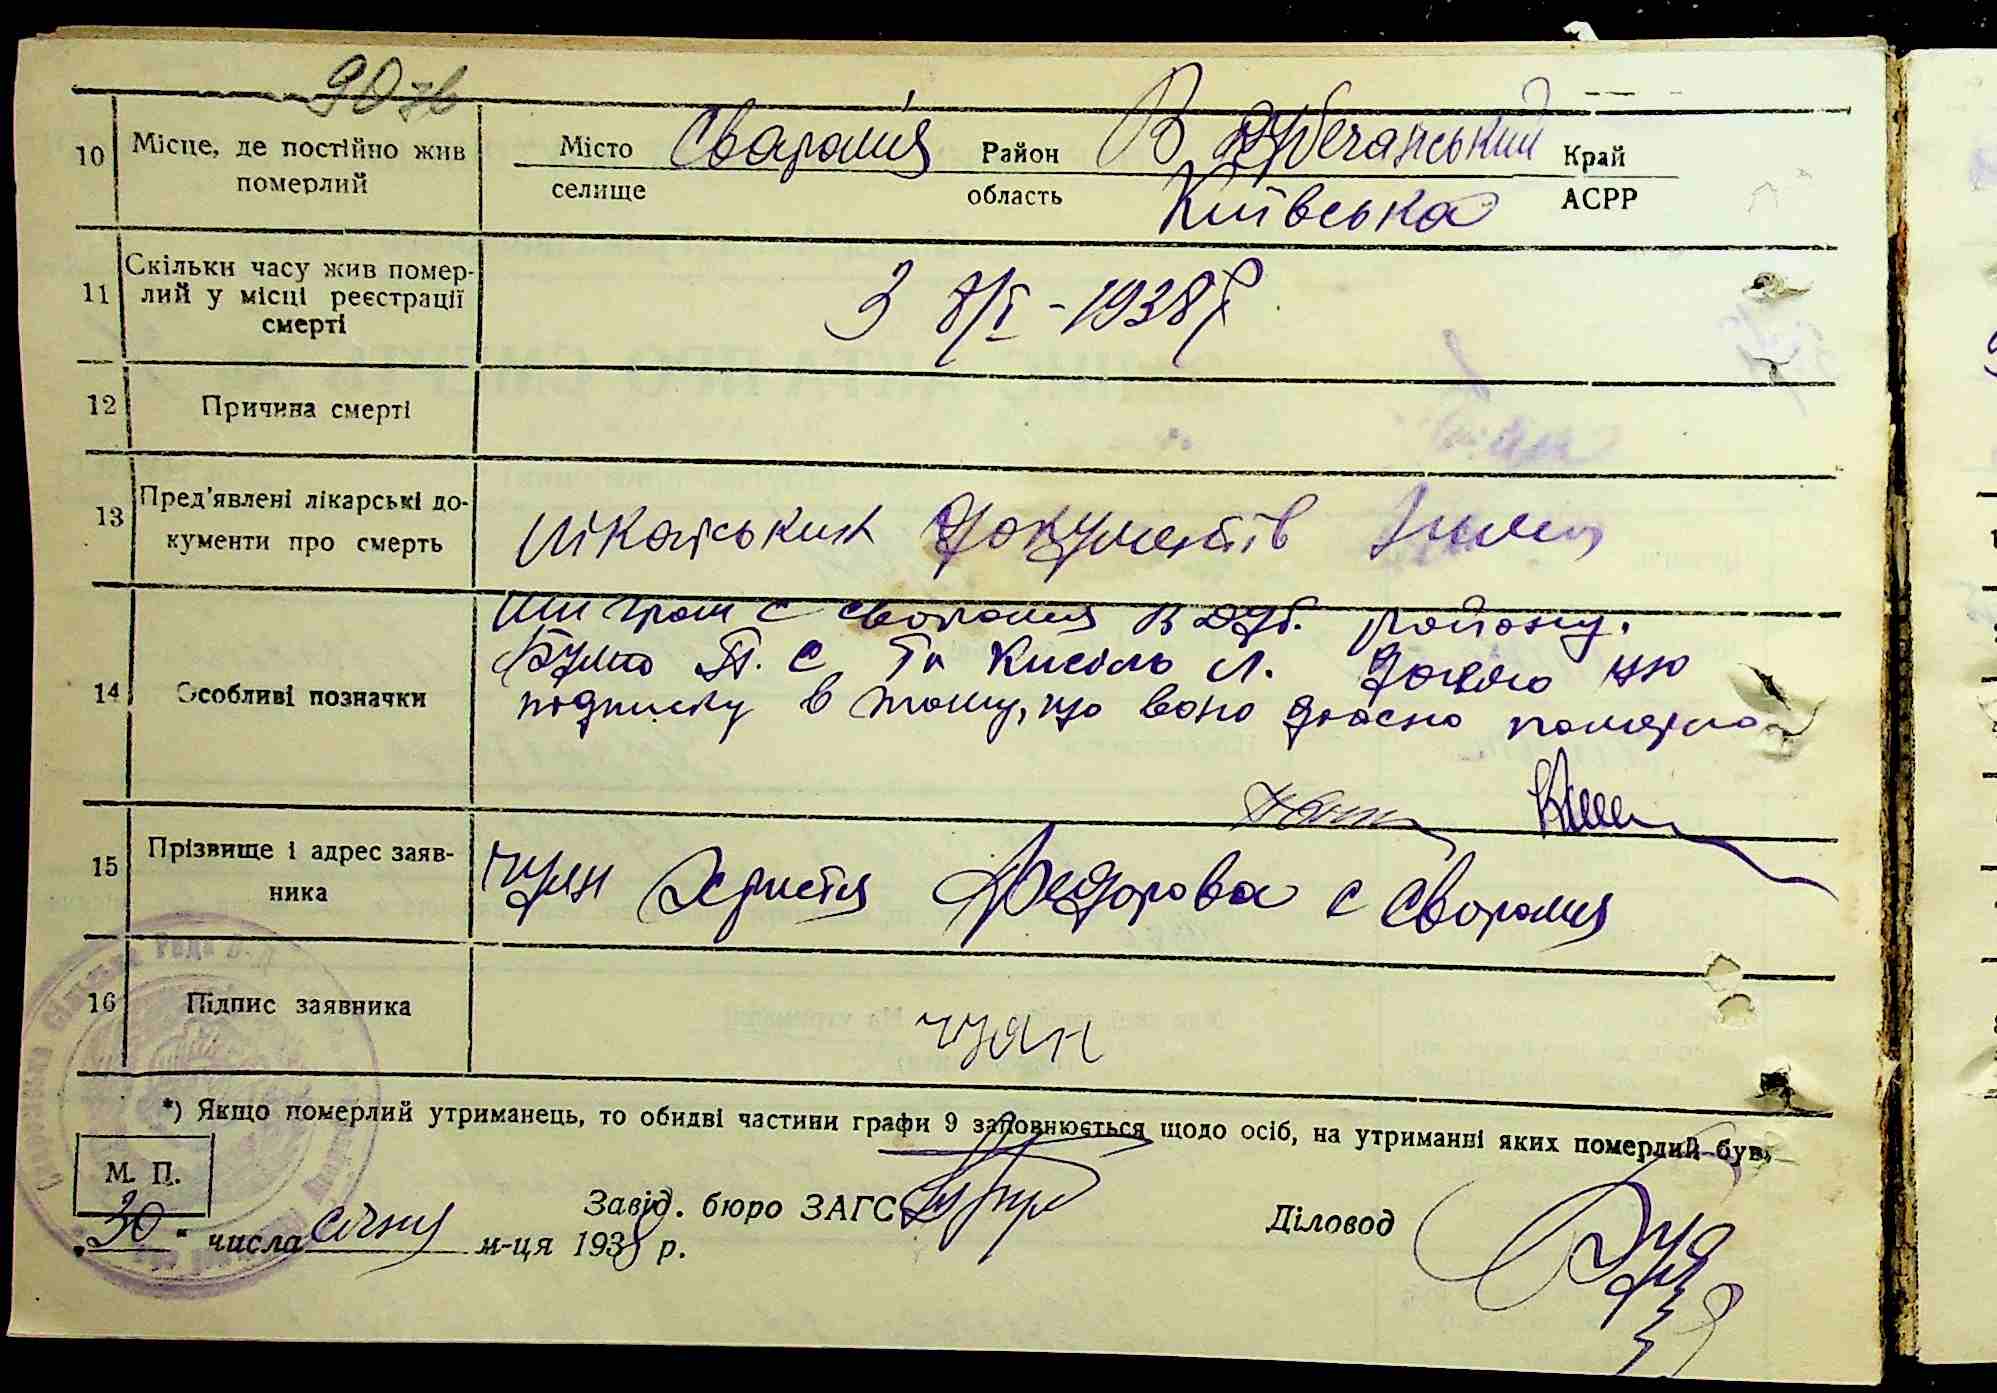 90 зв
10 Місце, де постійно жив померлий Місто селище Сваромя Район область В Дубечанський Київська Край АСРР
11 Скільки часу жив померлий у місці реєстрації смерті З 8/I - 1938 р
12 Причина смерті
13 Пред'явлені лікарські документи про смерть лікарських документів нима
14 Особливі позначки Ми гром с Сваромя В Дуб. району.
Булко П. С та Кисіль Л. даємо цю
подписку в тому, що воно дійсно померло
15 Прізвище і адрес заявника Чуян Христя Федорова с Сваромя
16 Підпис заявника Чуян
*) Якщо померлий утриманець, то обидві частини графи 9 заповнюється щодо осіб, на утриманні яких померлий був.
М. П.
Завід. бюро ЗАГС Діловод
„30" числа січня м-ця 1938 р.